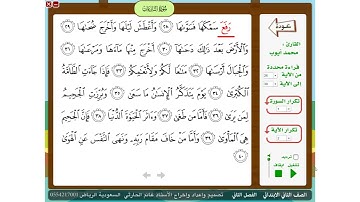 سُورَةُ النَّازِعَاتِ
رَفَعَ سَمْكَهَا فَسَوَّىٰهَا ٢٨ وَأَغْطَشَ لَيْلَهَا وَأَخْرَجَ ضُحَىٰهَا ٢٩
وَٱلْأَرْضَ بَعْدَ ذَٰلِكَ دَحَىٰهَا ٣٠ أَخْرَجَ مِنْهَا مَآءَهَا وَمَرْعَىٰهَا ٣١
وَٱلْجِبَالَ أَرْسَىٰهَا ٣٢ مَتَٰعًا لَّكُمْ وَلِأَنْعَٰمِكُمْ ٣٣ فَإِذَا جَآءَتِ ٱلطَّآمَّةُ
ٱلْكُبْرَىٰ ٣٤ يَوْمَ يَتَذَكَّرُ ٱلْإِنسَٰنُ مَا سَعَىٰ ٣٥ وَبُرِّزَتِ ٱلْجَحِيمُ
لِمَن يَرَىٰ ٣٦ فَأَمَّا مَن طَغَىٰ ٣٧ وَءَاثَرَ ٱلْحَيَوٰةَ ٱلدُّنْيَا ٣٨ فَإِنَّ ٱلْجَحِيمَ
هِىَ ٱلْمَأْوَىٰ ٣٩ وَأَمَّا مَنْ خَافَ مَقَامَ رَبِّهِۦ وَنَهَى ٱلنَّفْسَ عَنِ ٱلْهَوَىٰ
٤٠
عودة
القارئ :
محمد أيوب
قراءة محددة
من الآية
إلى الآية
تكرار السورة
تكرار الآية
ترديد
الصف الثاني الابتدائي الفصل الثاني تصميم وإعداد وإخراج الأستاذ غانم الحارثي السعودية الرياض 0554217001